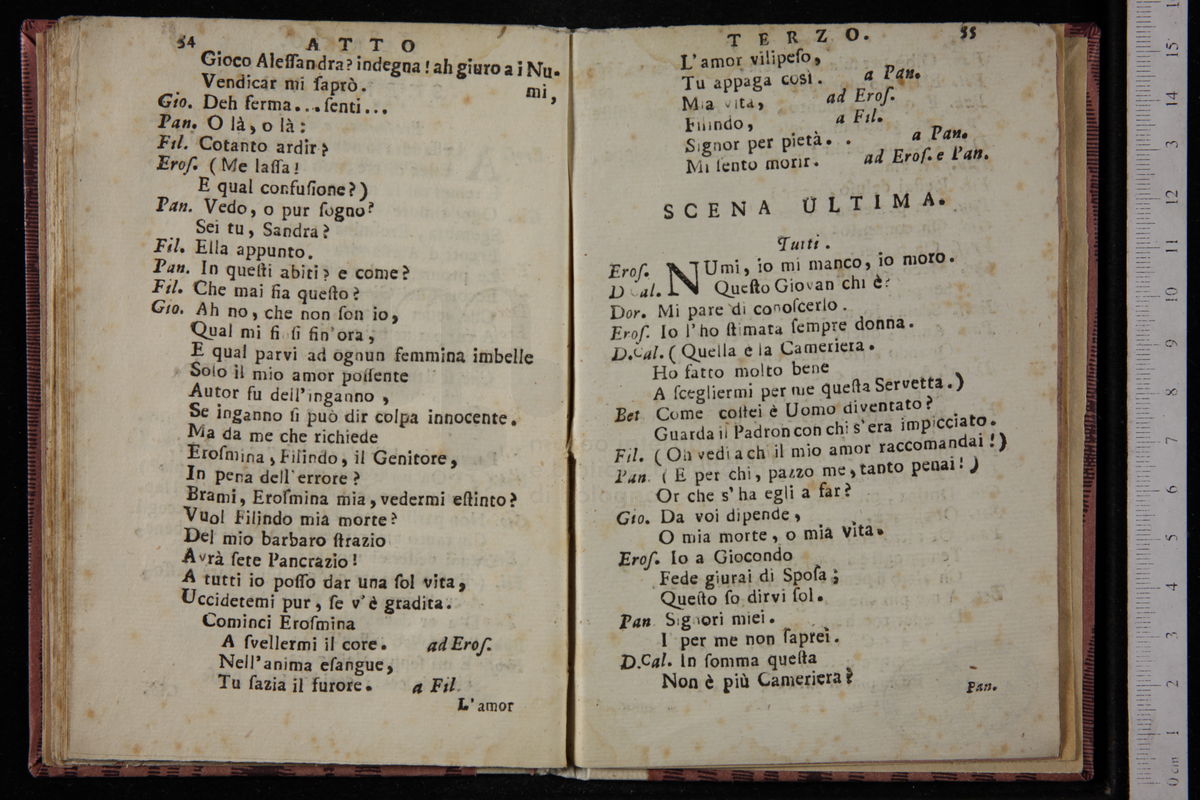 54 ATTO
Gioco Aleſſandra? indegna! ah giuro a i Nu-
Vendicar mi ſaprò. mi,
Gio. Deh ferma... ſenti...
Pan. O là, o là:
Fil. Cotanto ardir?
Eroſ. (Me laſſa!
E qual confuſione?)
Pan. Vedo, o pur ſogno?
Sei tu, Sandra?
Fil. Ella appunto.
Pan. In queſti abiti? e come?
Fil. Che mai ſia queſto?
Gio. Ah no, che non ſon io,
Qual mi finſi fin'ora,
E qual parvi ad ognun femmina imbelle
Solo il mio amor poſſente
Autor fu dell'inganno,
Se inganno ſi può dir colpa innocente.
Ma da me che richiede
Eroſmina, Filindo, il Genitore,
In pena dell'errore?
Brami, Eroſmina mia, vedermi eſtinto?
Vuol Filindo mia morte?
Del mio barbaro ſtrazio
Avrà ſete Pancrazio!
A tutti io poſſo dar una ſol vita,
Uccidetemi pur, ſe v'è gradita.
Cominci Eroſmina
A ſvellermi il core. ad Eroſ.
Nell'anima eſangue,
Tu ſazia il furore. a Fil.
L'amor
TERZO. 55
L'amor vilipeſo,
Tu appaga così. a Pan.
Mia vita, ad Eroſ.
Filindo, a Fil.
Signor per pietà. . a Pan.
Mi ſento morir. ad Eroſ. e Pan.
SCENA ULTIMA.
Tutti.
Eroſ. NUmi, io mi manco, io moro.
D.Cal. Queſto Giovan chi è?
Dor. Mi pare di conoſcerlo.
Eroſ. Io l'ho ſtimata ſempre donna.
D.Cal. (Quella è la Cameriera.
Ho fatto molto bene
A ſcegliermi per me queſta Servetta.)
Bet Come coſtei è Uomo diventato?
Guarda il Padron con chi s'era impicciato.
Fil. (Oh vedi a chi il mio amor raccomandai!)
Pan. (E per chi, pazzo me, tanto penai!)
Or che s'ha egli a far?
Gio. Da voi dipende,
O mia morte, o mia vita.
Eroſ. Io a Giocondo
Fede giurai di Spoſa;
Queſto ſo dirvi ſol.
Pan. Signori miei.
I per me non ſaprei.
D.Cal. In ſomma queſta
Non è più Cameriera?
Pan.